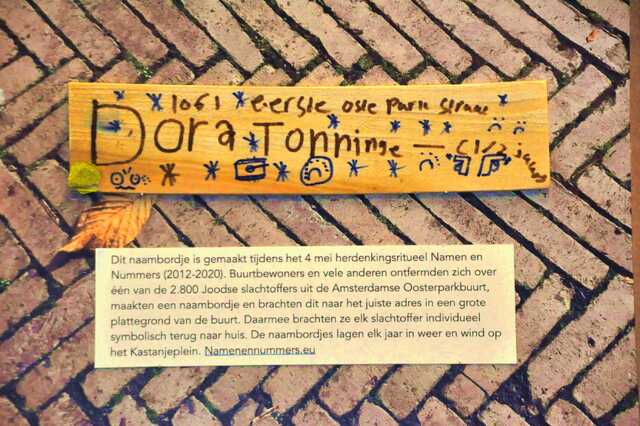 1061 eerste oste Park straat
Dora Tonninge — (1/2 jaar)
Dit naambordje is gemaakt tijdens het 4 mei herdenkingsritueel Namen en
Nummers (2012-2020). Buurtbewoners en vele anderen ontfermden zich over
één van de 2.800 Joodse slachtoffers uit de Amsterdamse Oosterparkbuurt,
maakten een naambordje en brachten dit naar het juiste adres in een grote
plattegrond van de buurt. Daarmee brachten ze elk slachtoffer individueel
symbolisch terug naar huis. De naambordjes lagen elk jaar in weer en wind op
het Kastanjeplein. Namenennummers.eu